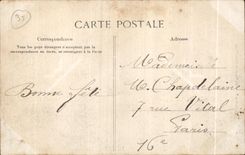 35
CARTE POSTALE
Correspondance
Adresse
Tous les pays étrangers n'acceptent pas la
correspondance au recto, se renseigner à la Poste
Mademoiselle
M. Chapdelaine
7 rue Vital
Paris
16e
Bonne fête